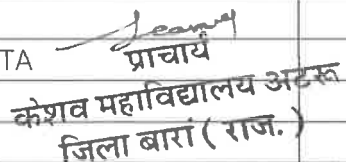 TA
प्राचार्य
केशव महाविद्यालय अटरू
जिला बारां ( राज. )